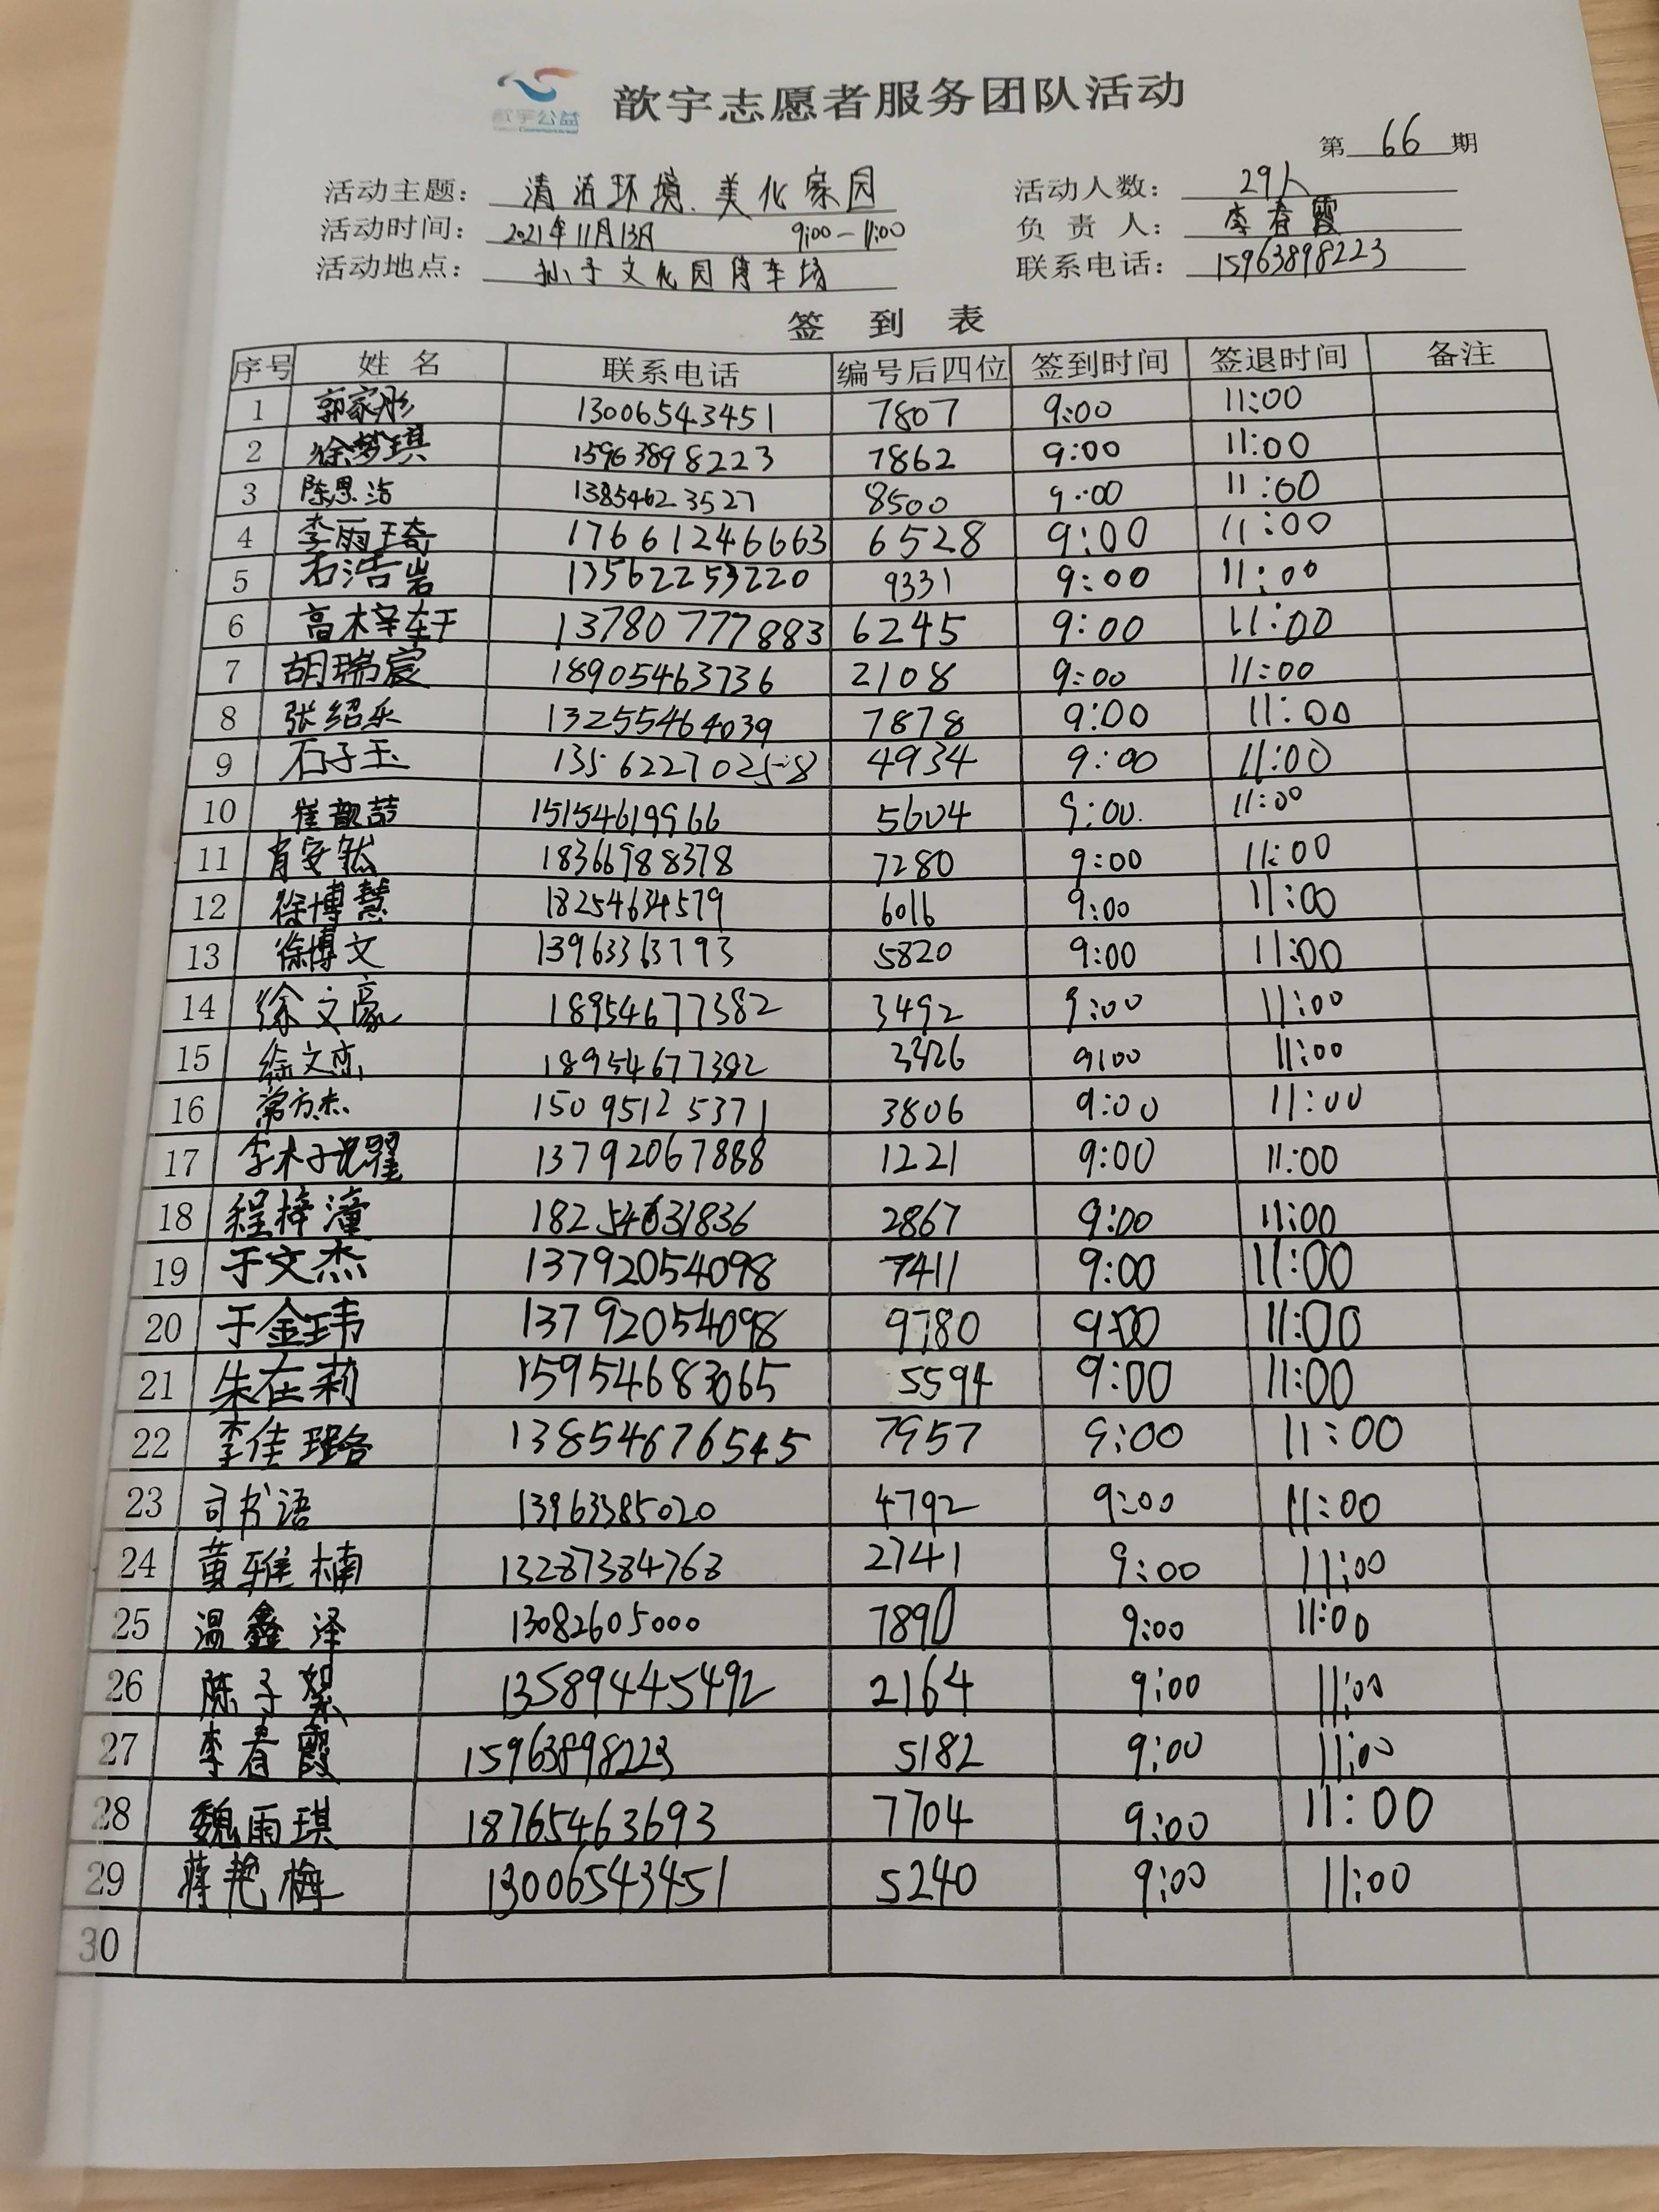 歆宇公益
歆宇志愿者服务团队活动
第 66 期
活动主题: 清洁环境、美化家园 活动人数: 29人
活动时间: 2021年11月13日 9:00-11:00 负责人: 李春霞
活动地点: 孙子文化园停车场 联系电话: 15963898223
签到表
序号 姓名 联系电话 编号后四位 签到时间 签退时间 备注
1 郭家彤 13006543451 7807 9:00 11:00
2 徐梦琪 15963898223 7862 9:00 11:00
3 陈思洁 13854623527 8500 9:00 11:00
4 李雨琦 17661246663 6528 9:00 11:00
5 石浩岩 13562253220 9331 9:00 11:00
6 高梓轩 13780777883 6245 9:00 11:00
7 胡瑞宸 18905463736 2108 9:00 11:00
8 张绍乐 13255464039 7878 9:00 11:00
9 石子玉 13562270258 4934 9:00 11:00
10 崔歆喆 15154619966 5604 9:00 11:00
11 肖安然 18366988378 7280 9:00 11:00
12 徐博慧 18254634579 6016 9:00 11:00
13 徐博文 13963363793 5820 9:00 11:00
14 徐文豪 18954677382 3492 9:00 11:00
15 徐文 18954677382 3326 9:00 11:00
16 常方杰 15095125371 3806 9:00 11:00
17 李 13792067888 1221 9:00 11:00
18 程梓潼 18254631836 2867 9:00 11:00
19 于文杰 13792054098 7411 9:00 11:00
20 于金玮 13792054098 9780 9:00 11:00
21 朱在莉 15954683065 5594 9:00 11:00
22 李佳璐 13854676545 7957 9:00 11:00
23 司书语 13963385020 4792 9:00 11:00
24 黄雅楠 13287384768 2741 9:00 11:00
25 温鑫泽 13082605000 7890 9:00 11:00
26 陈子絮 13589445492 2164 9:00 11:00
27 李春霞 15963898223 5182 9:00 11:00
28 魏雨琪 18765463693 7704 9:00 11:00
29 蒋艳梅 13006543451 5240 9:00 11:00
30